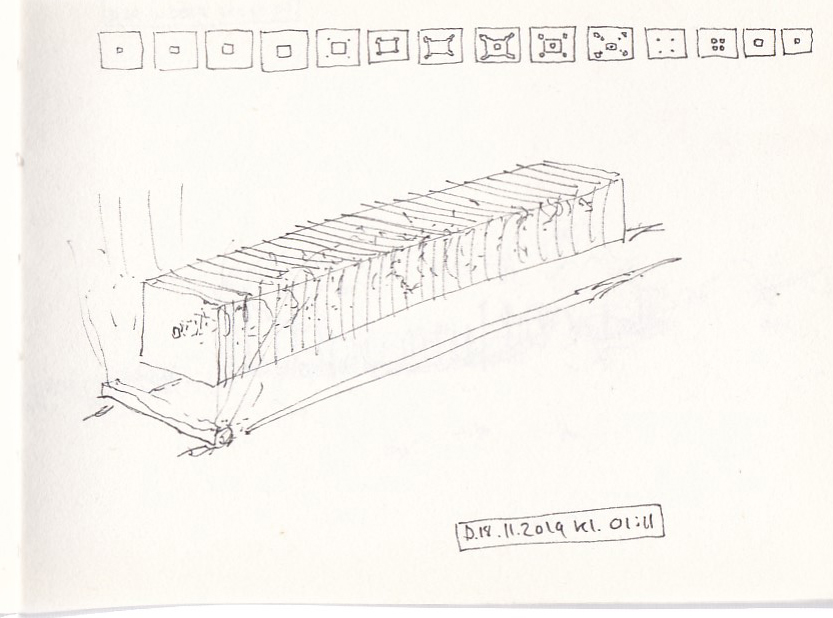 D.18.11.2019 Kl. 01:11